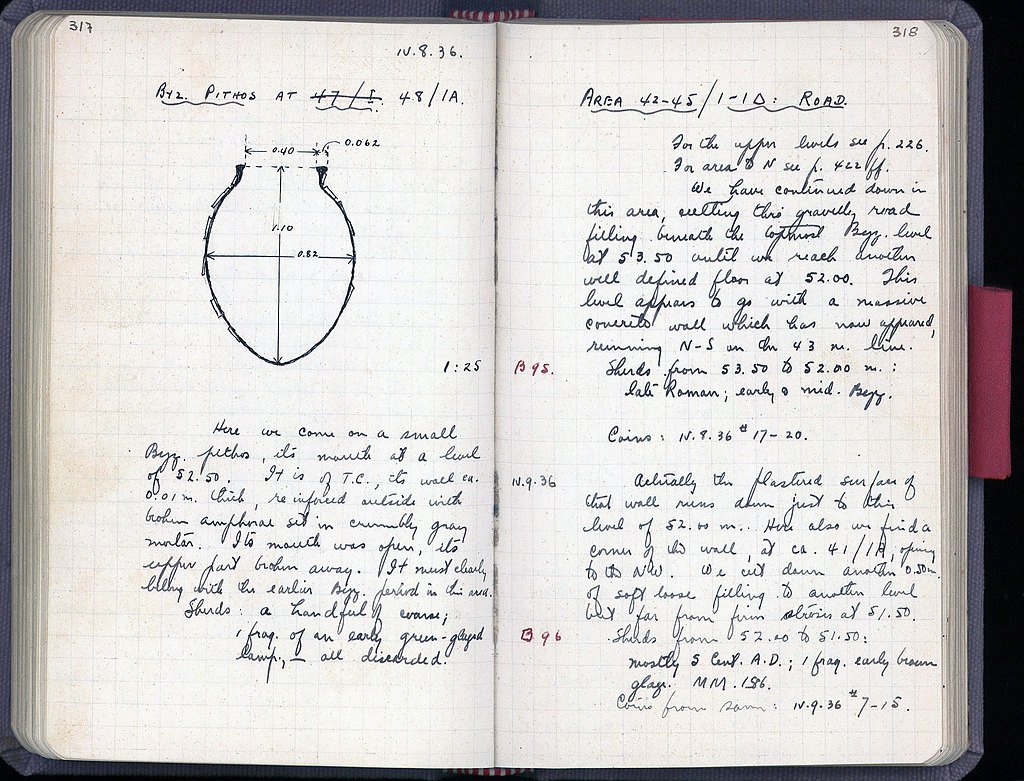 317
IV.8.36.
Byz. Pithos at 47/I 48/1A.
0.40
0.062
1.10
0.52
1:25
Here we come on a small
Byz. pithos, its mouth at a level
of 52.50. It is of T.C., its wall ca.
0.01 m. thick, reinforced outside with
broken amphorae set in crumbly gray
mortar. Its mouth was open, its
upper part broken away. It must clearly
belong with the earlier Byz. period in this area.
Sherds: a handful of coarse;
1 frag. of an early green-glazed
lamp, — all discarded.
318
Area 42-45/1-1Δ: Road.
For the upper levels see p. 226.
For area to N see p. 422 ff.
We have continued down in
this area, cutting this gravelly road
filling beneath the topmost Byz. level
at 53.50 until we reach another
well defined floor at 52.00. This
level appears to go with a massive
concrete wall which has now appeared,
running N-S on the 43 m. line.
B 95.
Sherds from 53.50 to 52.00 m.:
late Roman; early & mid. Byz.
Coins: IV.8.36 # 17-20.
IV.9.36
Actually the plastered surface of
that wall runs down just to this
level of 52.00 m.. Here also we find a
corner of the wall, at ca. 41/1A, opening
to the NW. We cut down another 0.50 m.
of soft loose filling to another level
but far from firm at 51.50.
B 96
Sherds from 52.00 to 51.50:
mostly 5 Cent. A.D.; 1 frag. early brown
glaze. MM.186.
Coins from same: IV.9.36 # 7-15.